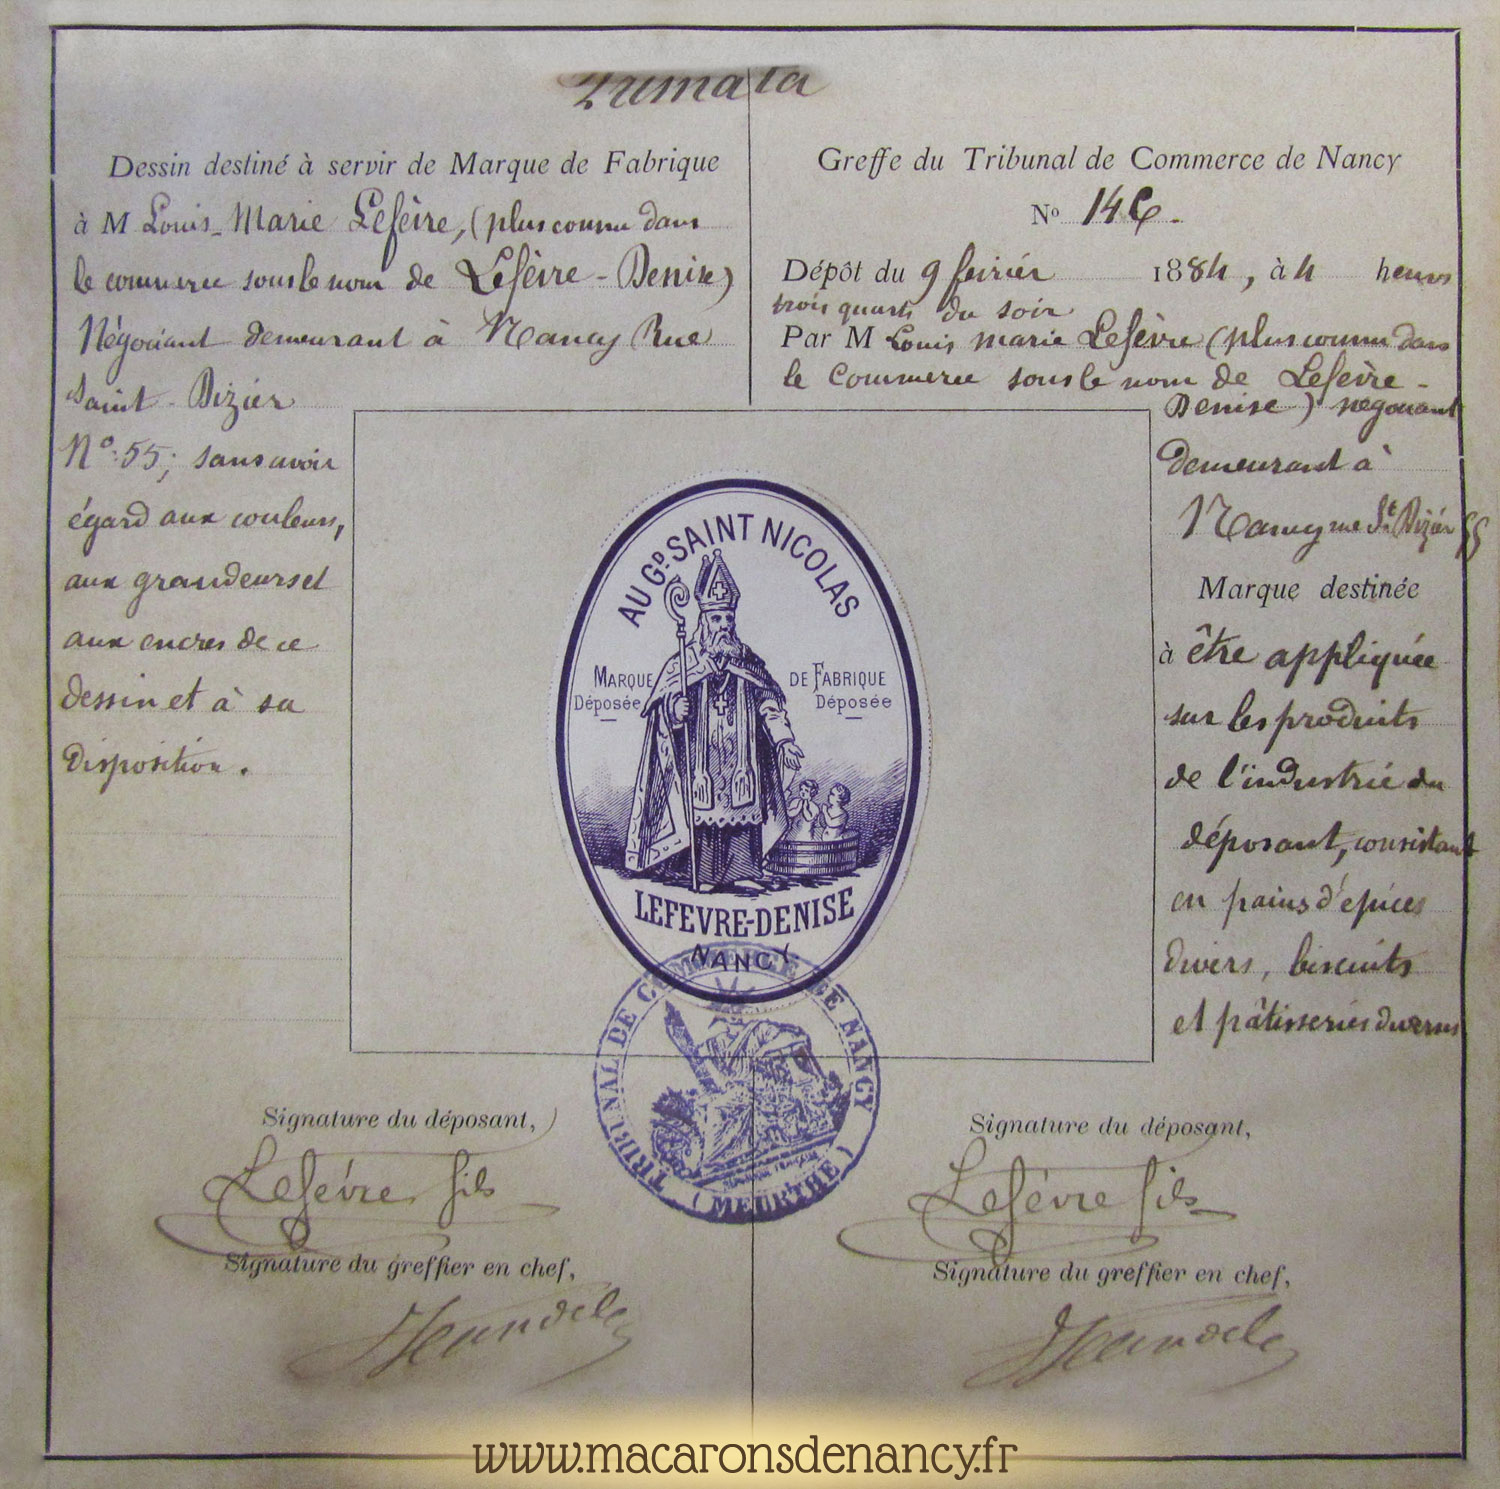 Dessin destiné à servir de Marque de Fabrique
à M Louis-Marie Lefèvre, (plus connu dans
le commerce sous le nom de Lefèvre-Denise)
Négociant demeurant à Nancy Rue
Saint-Dizier
Nº 55; sans avoir
égard aux couleurs,
aux grandeurs et
aux encres de ce
dessin et à sa
disposition.
Greffe du Tribunal de Commerce de Nancy
Nº 146.
Dépôt du 9 février 1884, à 4 heures
trois quarts du soir
Par M Louis marie Lefèvre (plus connu dans
le Commerce sous le nom de Lefèvre-
Denise) négociant
demeurant à
Nancy rue St Dizier 55
Marque destinée
à être appliquée
sur les produits
de l'industrie du
déposant, consistant
en pains d'épices
divers, biscuits
et pâtisseries diverses
AU GD SAINT NICOLAS
MARQUE DE FABRIQUE
Déposée Déposée
LEFEVRE-DENISE
NANCY.
TRIBUNAL DE COMMERCE DE NANCY
(MEURTHE)
Signature du déposant,
Lefèvre fils
Signature du greffier en chef,
Signature du déposant,
Lefèvre fils
Signature du greffier en chef,
www.macaronsdenancy.fr